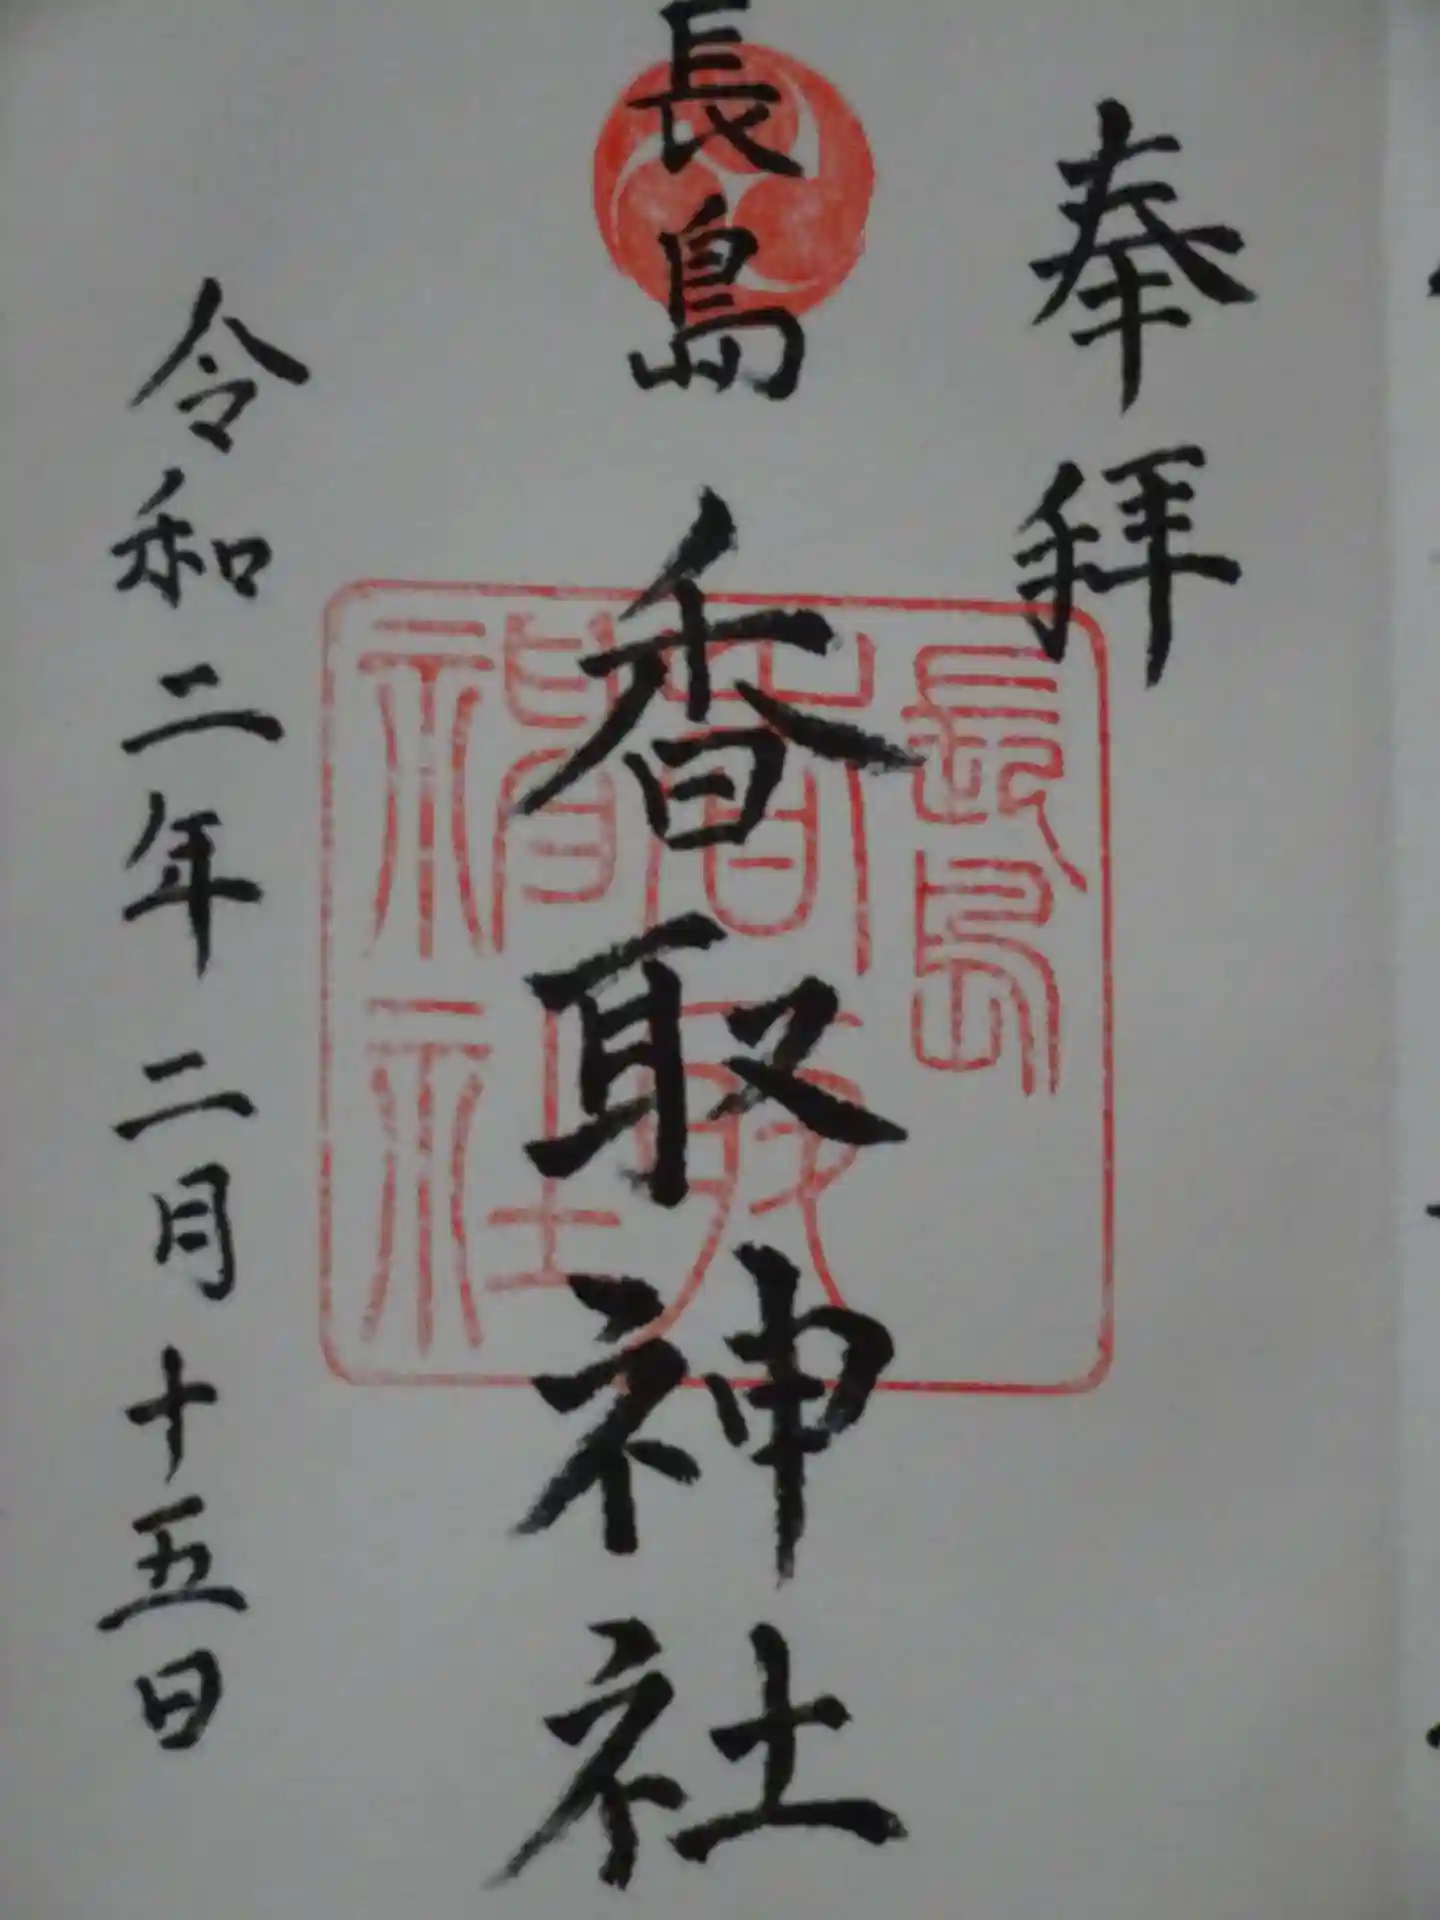 奉拝
長島 香取神社
長島
香取
神社
令和二年二月十五日